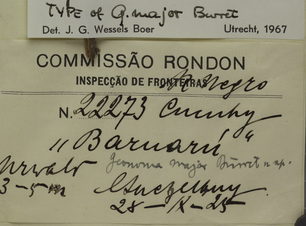 TYPE of G. major Burret
Det. J. G. Wessels Boer Utrecht, 1967
COMMISSÃO RONDON
INSPECÇÃO DE FRONTEIRAS
R. Negro
N. 22273 Cucuhy
„ Baruarú "
Urwald Geonoma major Burret n. sp.
3-5 m Luetzelburg
28-IX-25